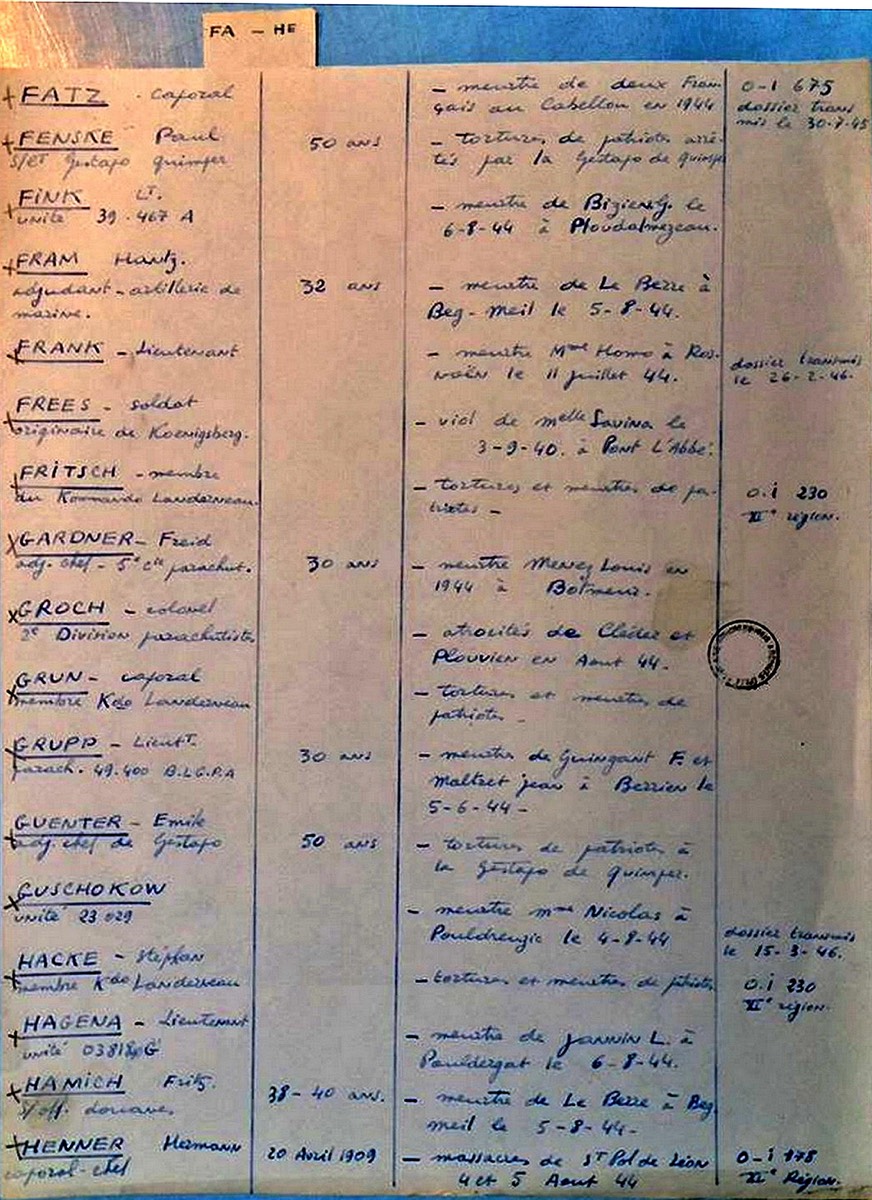 FA - HE
+ FATZ - caporal
- meurtre de deux Fran-
çais au Cabellou en 1944
O-I 675
dossier trans
mis le 30-7-45
+ FENSKE Paul
S/Lt Gestapo quimper
50 ans
- tortures de patriotes arrê-
tés par la Gestapo de quimper
+ FINK Lt.
unité 39.467 A
- meurtre de Bizien G. le
6-8-44 à Ploudalmezeau.
+ FRAM Hantz.
adjudant - artillerie de
marine.
32 ans
- meurtre de Le Berre à
Beg-Meil le 5-8-44.
+ FRANK - Lieutenant
- meurtre Mme Homo à Ros-
noën le 11 juillet 44.
dossier transmis
le 26-2-46.
+ FREES - soldat
originaire de Koenigsberg.
- viol de Melle Savina le
3-9-40. à Pont L'Abbé.
+ FRITSCH - membre
du Kommando Landerneau.
- tortures et meurtres de pa-
triotes -
O.i 230
XIe région.
X GARDNER - Freid
adj. chef - 5e Cie parachut.
30 ans
- meurtre Menez Louis en
1944 à Botmeur.
X GROCH - colonel
2e Division parachutistes
- atrocités de Cléder et
Plouvien en Aout 44.
X GRUN - caporal
membre Kdo Landerneau
- tortures et meurtres de
patriotes -
X GRUPP - Lieutt.
parach. 49.400 B.L.G.P.A
30 ans
- meurtre de Guingant F. et
Maltret jean à Berrien le
5-6-44 -
+ GUENTER - Emile
adj. chef de Gestapo
50 ans
- tortures de patriotes à
la Gestapo de quimper.
X GUSCHOKOW
unité 23 029
- meurtre mme Nicolas à
Pouldreuzic le 4-8-44
dossier transmis
le 15-3-46.
X HACKE - Stéphan
membre Kdo Landerneau
- tortures et meurtres de patriotes
O.i 230
XIe région.
X HAGENA - Lieutenant
unité 03818 G
- meurtre de JANNIN L. à
Pouldergat le 6-8-44.
+ HAMICH Fritz.
s/off. douanes
38-40 ans.
- meurtre de Le Berre à Beg
meil le 5-8-44.
+ HENNER Hermann
caporal-chef
20 Avril 1909
- massacres de St Pol de Léon
4 et 5 Aout 44
O-i 178
XIe Région.